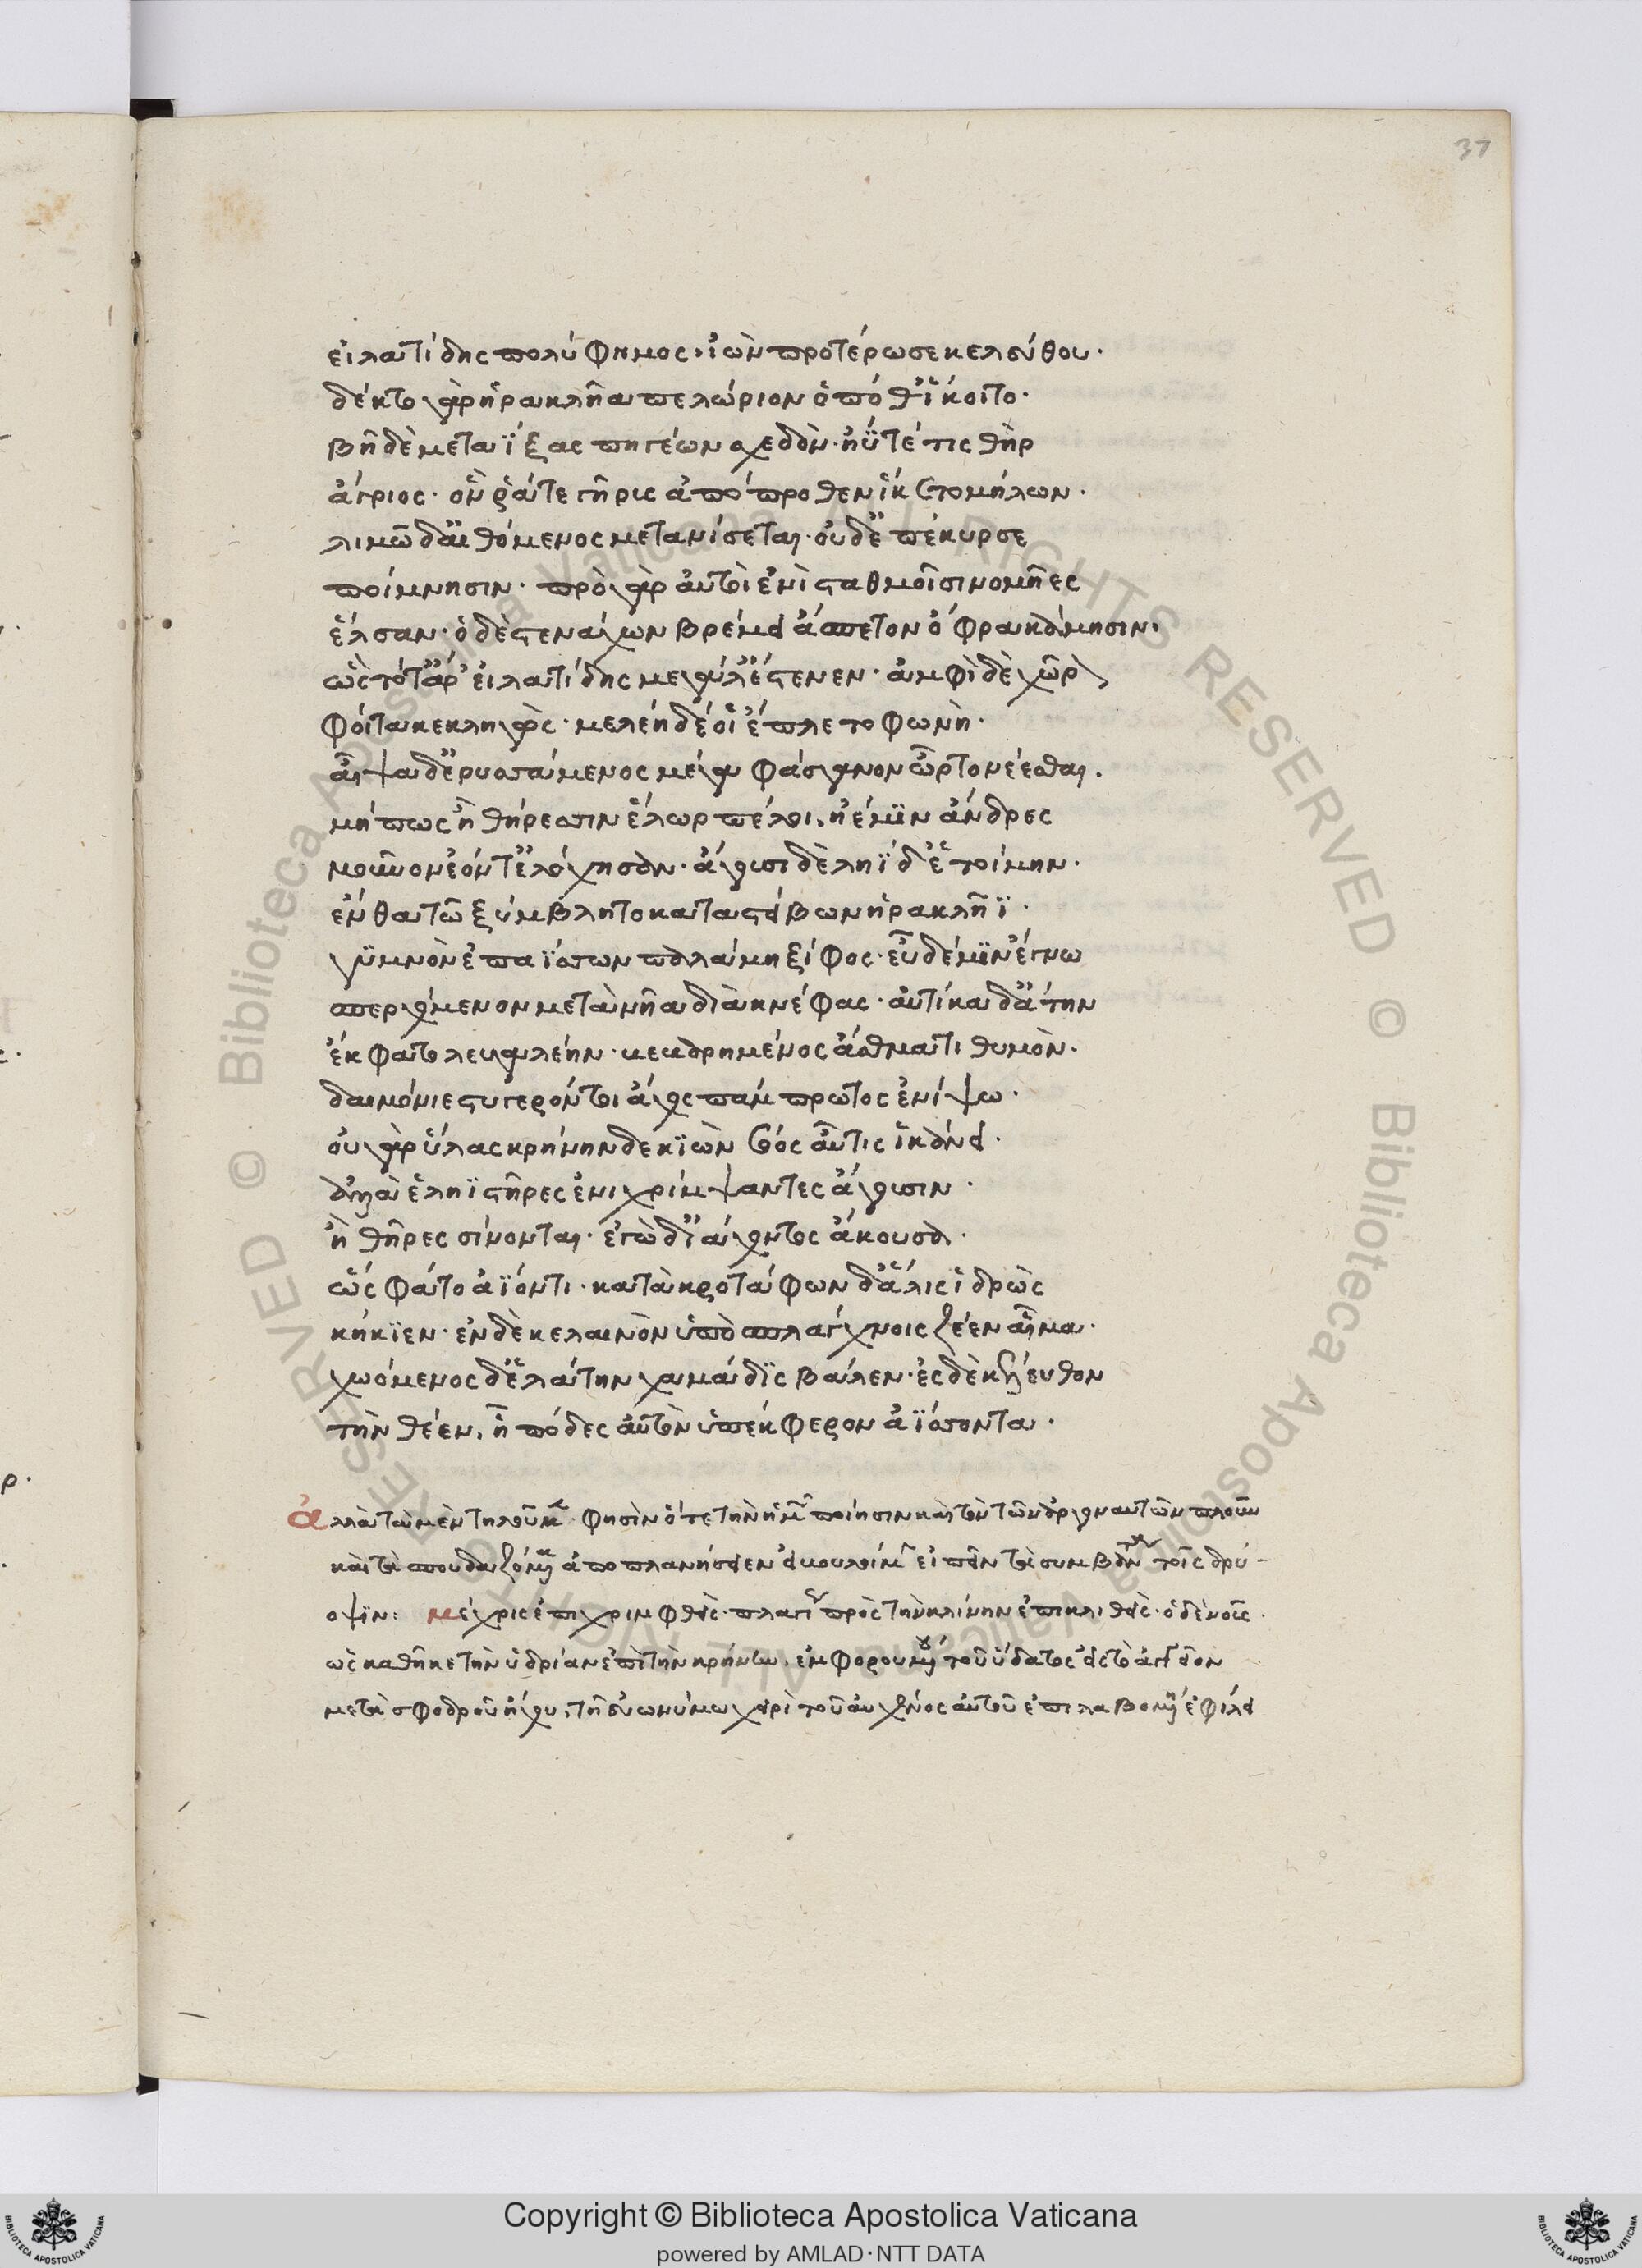 37
εἰλατίδης πολύφημος· ἰὼν προτέρωσε κελεύθου·
δέκτο γὰρ ἡρακλῆα πελώριον ὁπόθ' ἵκοιτο·
βῆ δὲ μεταΐξας πηγέων σχεδὸν· ἠΰτέ τις θὴρ
ἄγριος· ὅν ῥά τε γῆρις ἀπόπροθεν ἵκετο μήλων·
λιμῶ δ' αἰθόμενος μετανίσεται· οὐδ' ἐπέκυρσε
ποίμνησιν· πρὸ γὰρ αὐτοὶ ἐνὶ σταθμοῖσι νομῆες
ἔλσαν· ὁ δὲ στενάχων βρέμει ἄσπετον ὄφρα κάμησιν·
ὣς τότ' ἄρ' εἰλατίδης μεγάλ' ἔστενεν· ἀμφὶ δὲ χῶρον
φοίτα κεκληγὼς· μελέη δέ οἱ ἔπλετο φωνὴ·
αἶψα δ' ἐρυσσάμενος μέγα φάσγανον ὦρτο νέεσθαι·
μή πως ἢ θήρεσσιν ἕλωρ πέλοι, ἠέ μιν ἄνδρες
μοῦνον ἐόντ' ἐλόχησαν· ἄγουσι δὲ ληΐδ' ἑτοίμην·
ἔνθα τῶ ξύμβλητο κατὰ στίβον ἡρακλῆϊ·
γυμνὸν ἐπαΐσσων παλάμη ξίφος· εὖ δέ μιν ἔγνω
σπερχόμενον μετὰ νῆα διὰ κνέφας· αὐτίκα δ' ἄτην
ἔκφατο λευγαλέην· βεβαρημένος ἄσθματι θυμὸν·
δαιμόνιε στυγερόν τοι ἄχος πάμπρωτος ἐνίψω·
οὐ γὰρ ὕλας κρήνην δε κιὼν σόος αὖτις ἱκάνει·
ἀλλά ἑ ληϊστῆρες ἐνιχρίμψαντες ἄγουσιν·
ἢ θῆρες σίνονται· ἐγὼ δ' ἰάχοντος ἄκουσα·
ὣς φάτο ἀΐοντι· κατὰ κροτάφων δ' ἅλις ἱδρὼς
κήκιεν· ἐν δὲ κελαινὸν ὑπὸ σπλάγχνοις ζέεν αἷμα·
χωόμενος δ' ἐλάτην χαμάδις βάλεν· ἐς δὲ κέλευθον
τὴν θέεν, ᾗ πόδες αὐτὸν ὑπέκφερον ἀΐσσοντα·
ἀλλὰ τὰ μὲν τηλοῦ κε· φησὶν ὅτε τὴν ἡμ ποίησιν καὶ τὸν τῶν ἀργοναυτῶν πλοῦν
καὶ τὰ σπουδαζόμ ἀποπλανήσειεν εἰ βουλοίμ εἰπεῖν τὰ συμβάν τοῖς δρύ-
οψιν: μέχρις ἐπιχριμφθεὶς· πλαγ πρὸς τὴν κλίνην ἐπικλιθεὶς· ὁ δὲ νοῦς·
ὡς καθῆκε τὴν ὑδρίαν ἐπὶ τὴν κρήνην, ἐμφορουμ τοῦ ὕδατος εἰς τὸ ἀγγεῖον
μετὰ σφοδροῦ ἤχου, τῆ εὐωνύμω χειρὶ τοῦ αὐχένος αὐτοῦ ἐπιλαβομ ἐφίλει
Copyright © Biblioteca Apostolica Vaticana
powered by AMLAD·NTT DATA